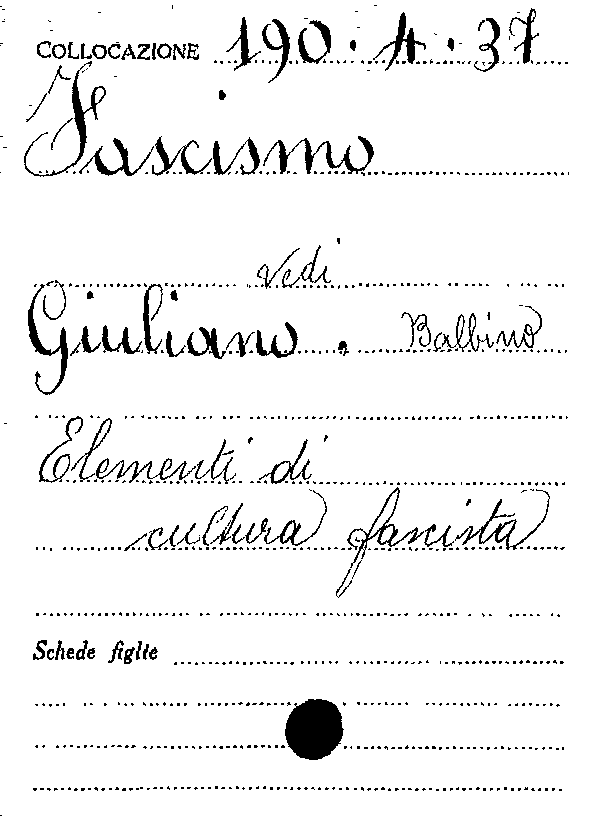 COLLOCAZIONE 190. A. 37
Fascismo
Vedi
Giuliano. Balbino
Elementi di
cultura fascista
Schede figlie